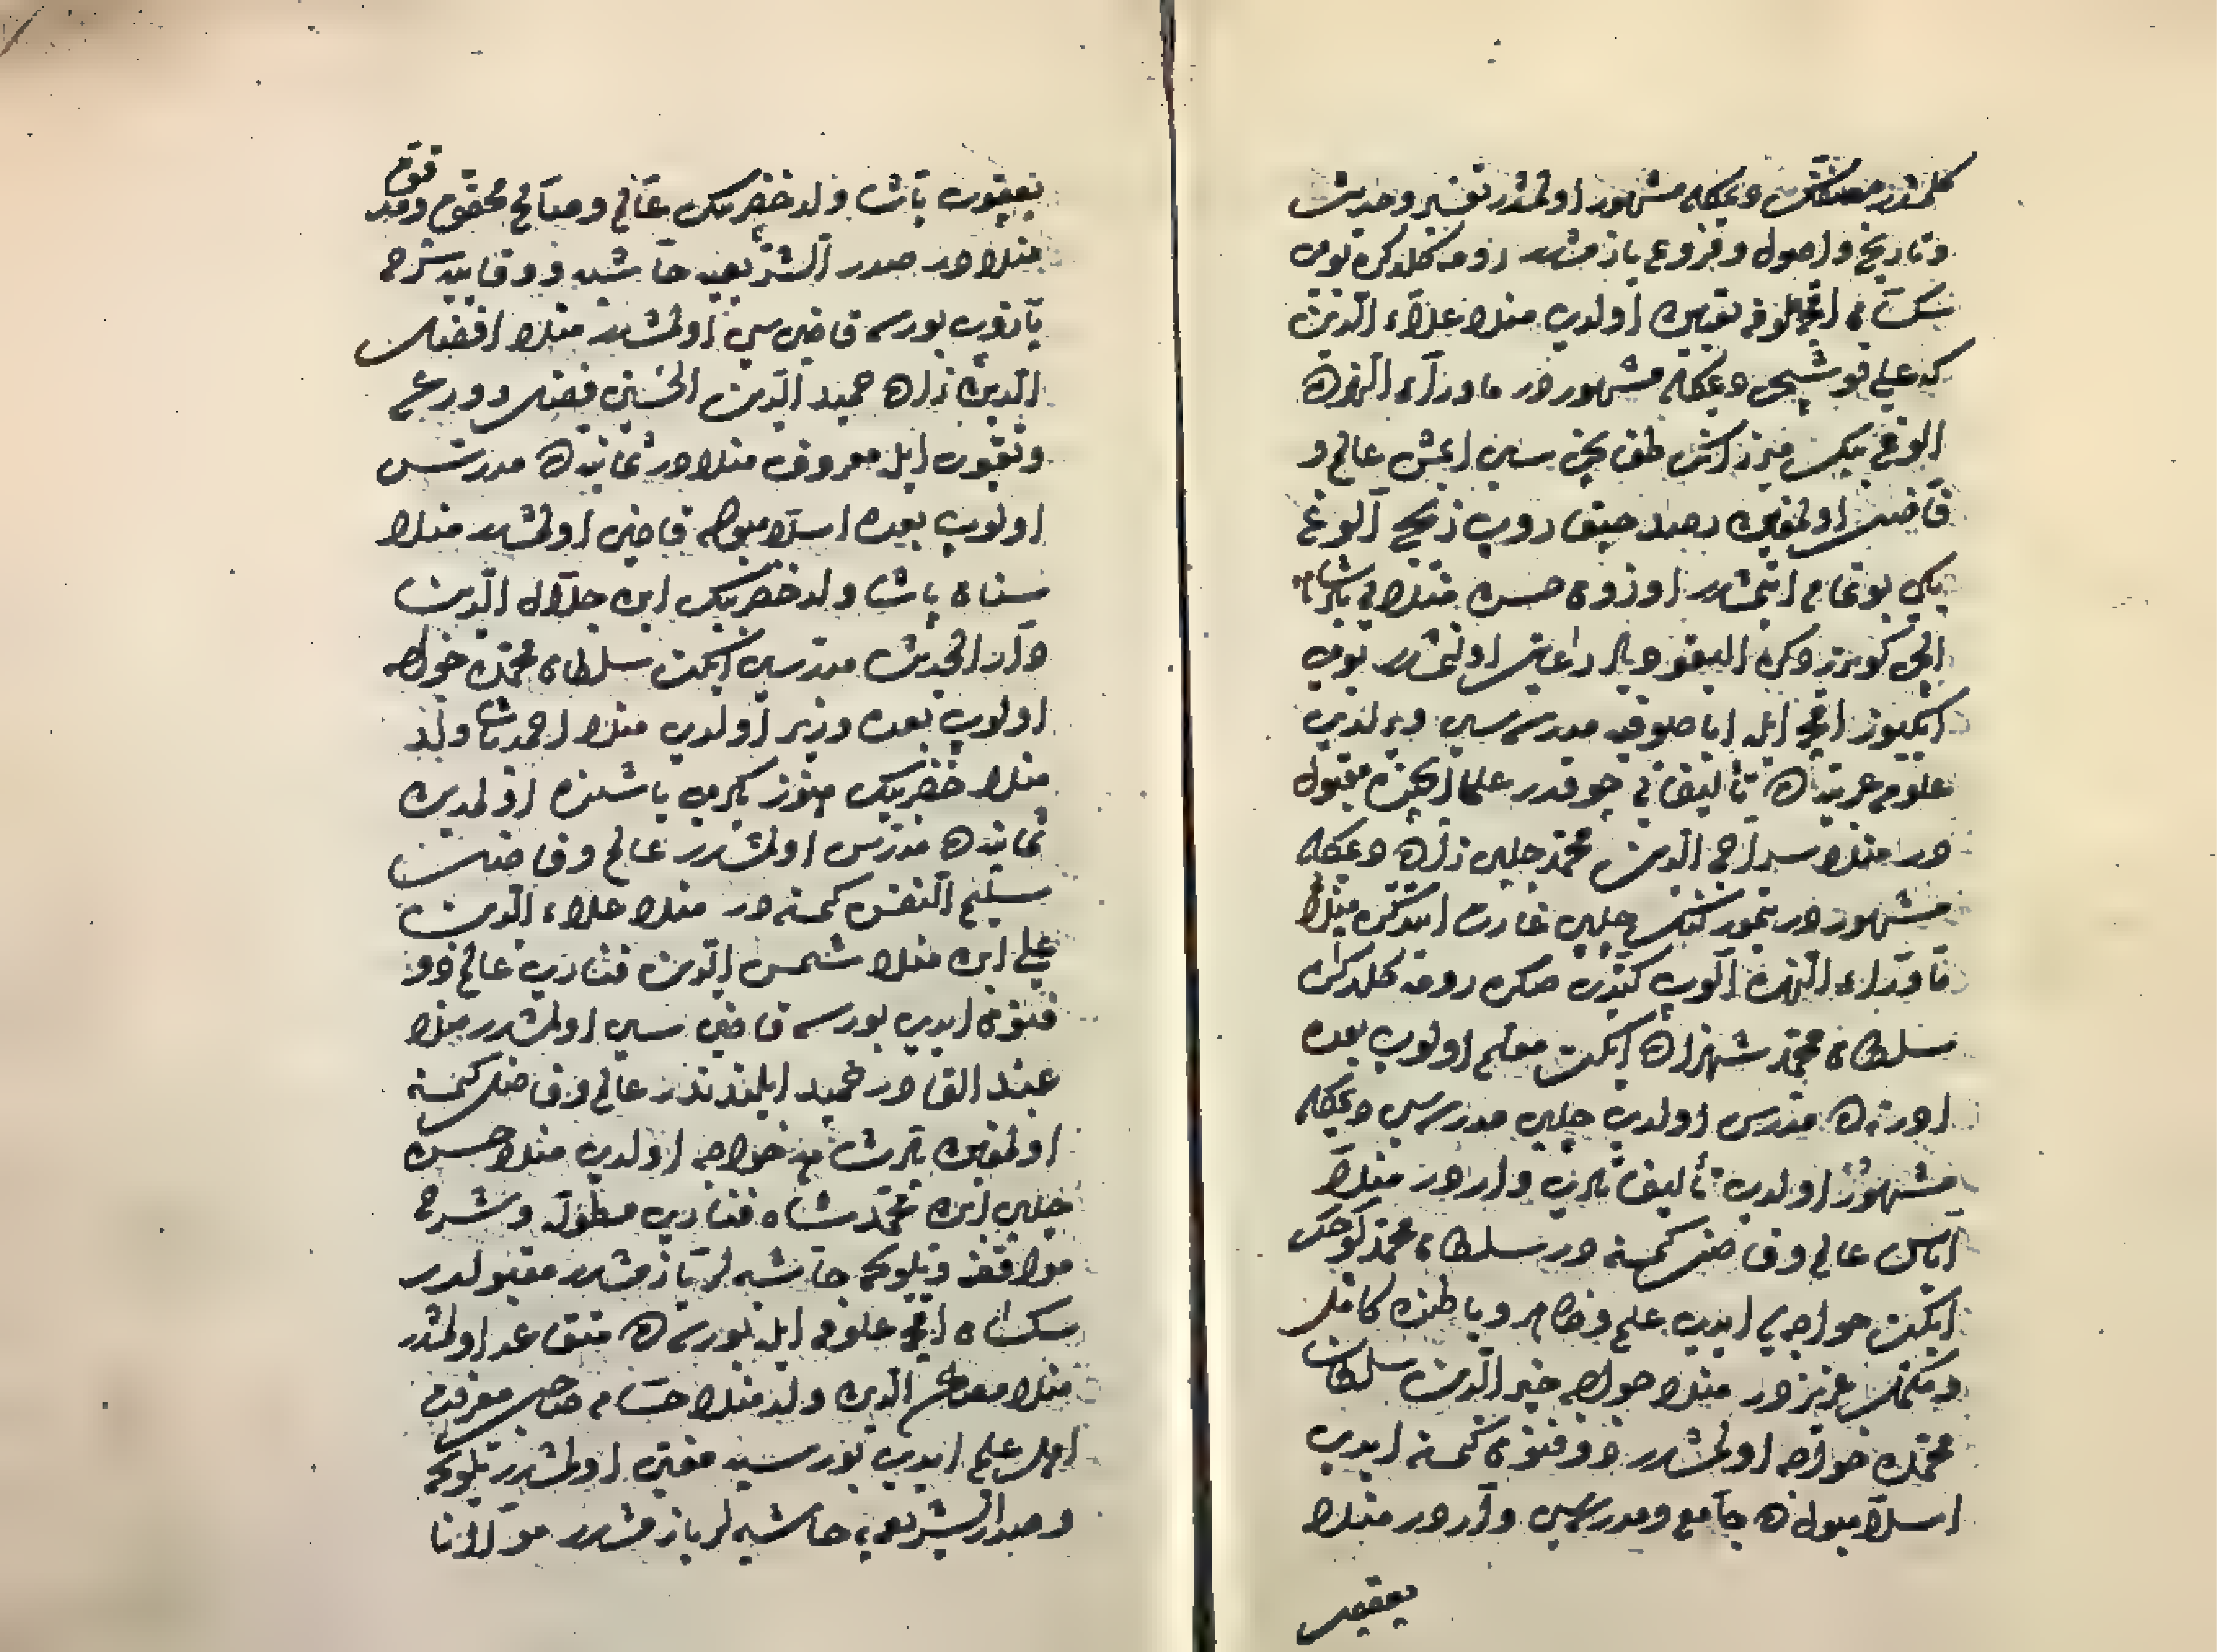 كلمشدر مصنفك ديمكله مشهور اولمشدر تفسير وحديث
وتاريخ واصول وفروع يازمشدر رومه كلدكده يومى
سكسان اقچه علوفه تعيين اولدى منلا علاء الدين
كه على قوشجى ديمكله مشهوردر ماوراء النهرده
الوغ بيك ميرزانك طوغانجى سى ايمش عالم و
فاضل اولمغين رصد حيقاروب زيج الوغ
بكى بو تمام ايتمشدر اوزون حسن منلايى
ايلجى كوندردكده اليقودىلر رعايتلر اولمشدر يومى
ايكيوز اقچه ايله اياصوفيه مدرسه سى ويرلدى
علوم عربيه ده تأليفاتى چوقدر علما ايچنده مقبول
در منلا سراج الدين محمد چلبى زاده ديمكله
مشهوردر تيمورلنك حلبى غارت ايتدكده منلا
ماوراء النهره الوب كتدى صكره رومه كلدكده
سلطان محمد شهزاده ايكن معلم اولوب بعده
ادرنه ده مدرس اولدى چلبى مدرسه سى ديمكله
مشهور اولدى تأليفلرى واردر منلا
اياس عالم وفاضل كمسنه در سلطان محمد كوچك
ايكن خواجه سى ايدى علم وظاهر وباطنده كامل
ومكمل عزيزدر منلا خواجه خير الدين سلطان
محمده خواجه اولمشدر ذو فنون كمسنه ايدى
اسلامبولده جامع ومدرسه سى واردر منلا
يعقوب
يعقوب پاشا ولد خضر بك عالم وصالح محقق ومدقق
منلادر صدر الشريعه حاشيه و وقايه يه شرح
يازوب بورسه قاضى سى اولمشدر منلا افضل
الدين زاده حميد الدين الحسينى فضل و ورع
وتقوى ايله معروف منلادر ثمانيه ده مدرس
اولوب بعده اسلامبوله قاضى اولمشدر منلا
سنان پاشا ولد خضر بك ابن جلال الدين
دار الحديث مدرسى ايكن سلطان محمده خواجه
اولوب بعده وزير اولدى منلا احمد پاشا ولد
منلا خضر بك هنوز يكرمى ياشنده اولمدين
ثمانيه ده مدرس اولمشدر عالم وفاضل
سليم النفس كمسنه در منلا علاء الدين
على ابن منلا شمس الدين فنارى عالم ذو
فنون ايدى بورسه قاضى سى اولمشدر منلا
عبد القادر حميد ايلندندر عالم وفاضل كمسنه
اولمغين پادشاهه خواجه اولدى منلا حسن
چلبى ابن محمد شاه فنارى مطوله وشرح
مواقفه وتلويحه حاشيه لر يازمشدر مقبولدر
سكسان اقچه علوفه ايله بورسه ده متقاعد اولمشدر
منلا مصلح الدين ولد منلا حسام صاحب معرفت
اهل علم ايدى بورسيه مفتى اولمشدر تلويحه
وصدر الشريعه يه حاشيه لر يازمشدر مولانا